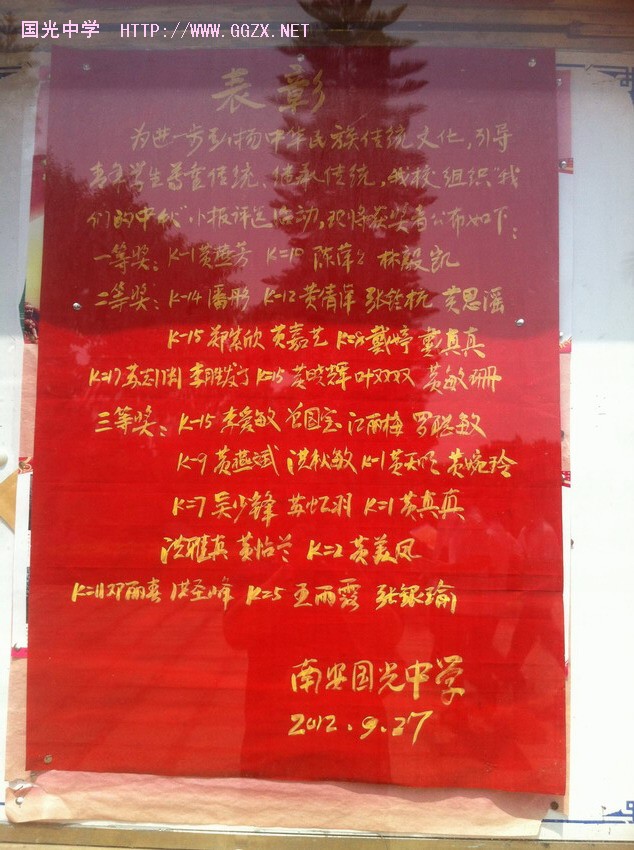 国光中学 HTTP://WWW.GGZX.NET
表彰
为进一步弘扬中华民族传统文化,引导
青年学生尊重传统、继承传统,我校组织"我
们的中秋"小报评选活动,现将获奖者公布如下:
一等奖: K-1黄燕芳 K=10 陈萍 林毅凯
二等奖: K-14潘彤 K-12黄青萍 张铨杭 黄思谣
K-15郑紫欣 黄嘉艺 戴婷 真真
K=17 李胜 K=15 黄晓辉 叶双双 黄敏珊
三等奖: K-15 李爱敏 江丽梅 罗聪敏
K-9 黄燕斌 洪秋敏 K-1黄天明 黄婉玲
K=7 吴少锋 苏忆羽 K=1黄真真
洪雅真 黄怡兰 K=2 黄美凤
K=11邓丽春 洪圣峰 K=5 王雨露 张银瑜
南安国光中学
2012.9.27